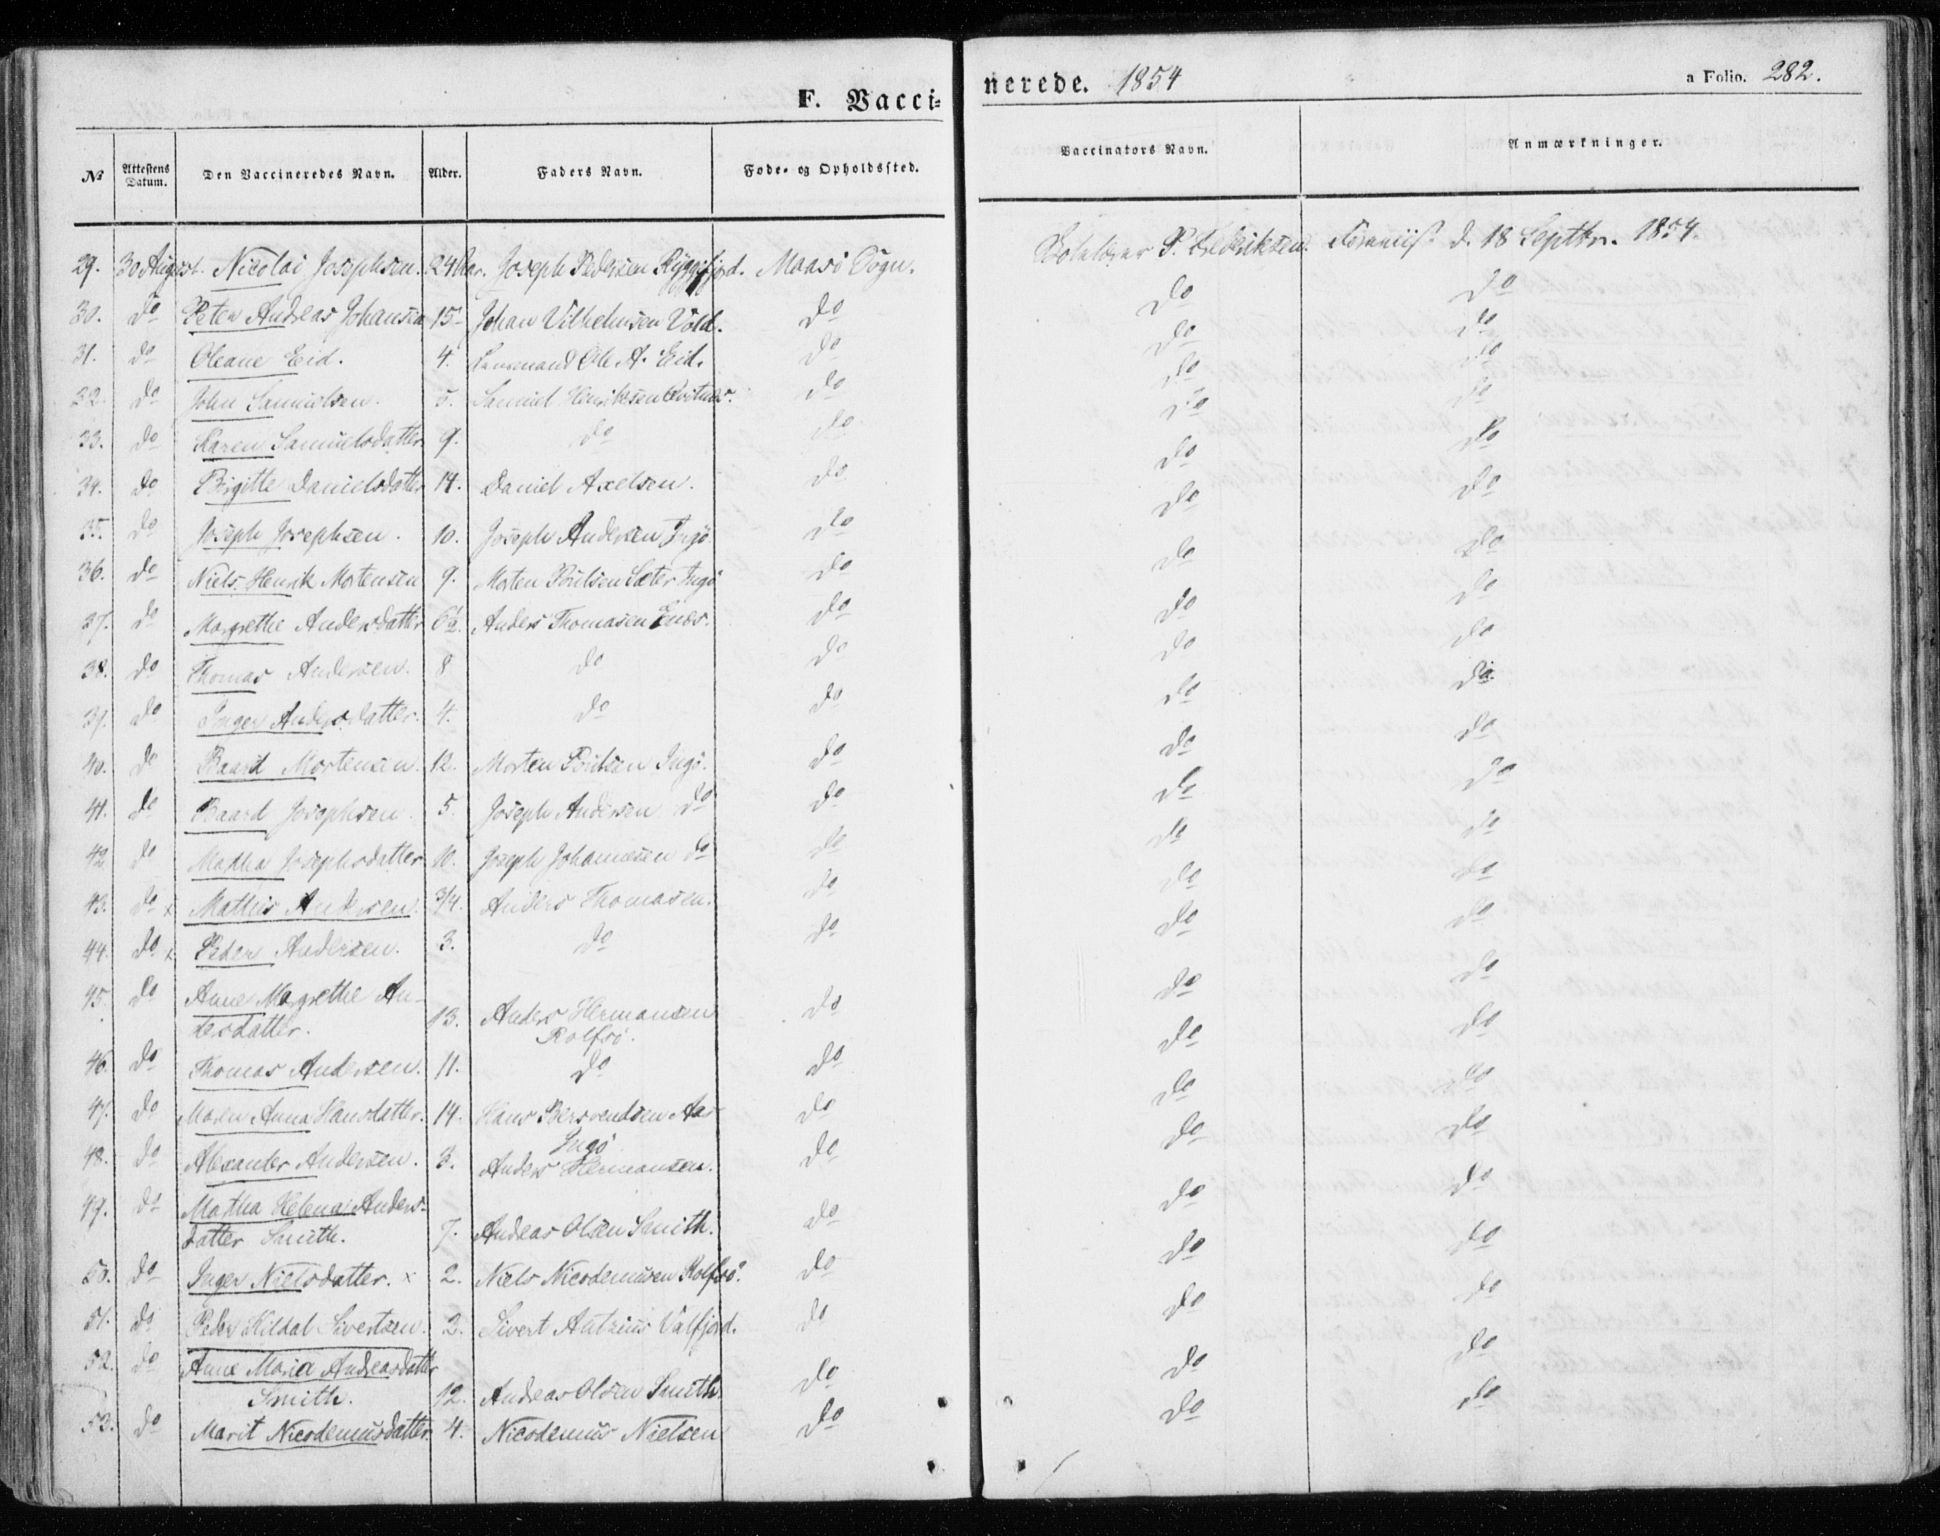 F. Vacci=
nerede. 1854
a Folio. 282.
No Attestens Datum. Den Vaccineredes Navn. Alder. Faders Navn. Føde- og Opholdssted. Vaccinators Navn. Anmærkninger.
29. 30 August. Nicolai Josephsen. 24 Aar. Joseph Pedersen Ryggefjord. Maasø Sogn. P. Frederiksen. d. 18 Septbr. 1854.
30. do Peter Andreas Johansen 15 Johan Vilhelmsen Vold. do do do
31. do Oleane Eid. 4. Ole A. Eid. do do do
32. do John Samuelsen. 5. Samuel Henriksen do do do
33. do Karen Samuelsdatter 9. do do do do
34. do Birgitte Danielsdatter 14. Daniel Axelsen. do do do
35. do Joseph Josephsen. 10. Joseph Andersen Ingø do do do
36. do Niels Henrik Mortensen 9. Morten Poulsen Sæter Ingø do do do
37. do Margrethe Andersdatter 6½. Anders Thomasen do do do
38. do Thomas Andersen. 8 do do do do
39. do Inger Andersdatter. 4. do do do do
40. do Baard Mortensen. 12. Morten Poulsen Ingø. do do do
41. do Baard Josephsen. 5. Joseph Andersen do do do do
42 do Martha Josephsdatter 10. Joseph Johannesen do do do do
43. do x Mathis Andersen. 3/4. Anders Thomasen. do do do
44. do x Peder Andersen. 3. do do do do
45. do Anne Margrethe An-
dersdatter. 13. Anders Hermansen do do do
Rolfsø.
46. do Thomas Andersen. 11. do do do do
47. do Maren Anna Hansdatter. 14. Hans Bersvendsen Aa- do do do
Ingø
48. do Alexander Andersen. 3. Anders Hermansen. do do do
49. do Martha Helena Anders-
datter Smith. 7. Andreas Olsen Smith. do do do
50. do Inger Nielsdatter. x 2. Niels Nicodemusen Rolfsø. do do do
51. do Peder Kildal Sivertsen. 2. Sivert Antzius Valfjord. do do do
52. do Anne Maria Andreasdatter
Smith. 12. Andreas Olsen Smith. do do do
53. do Marit Nicodemusdatter. 4. Nicodemus Nielsen do do do